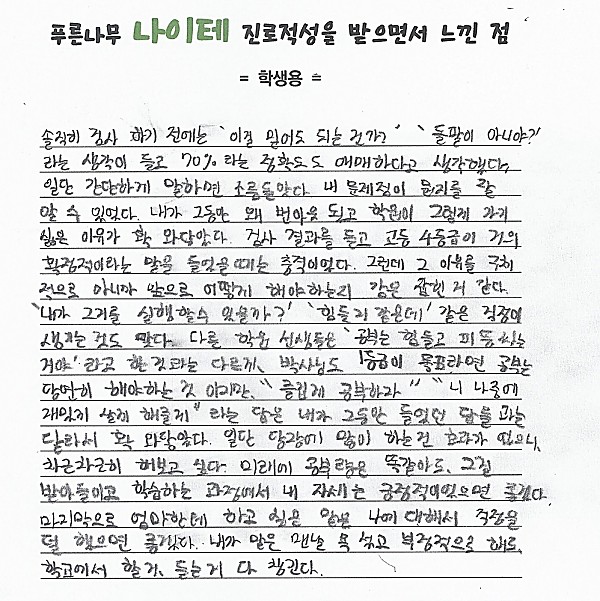 푸른나무 나이테 진로적성을 받으면서 느낀 점
= 학생용 =
솔직히 검사 하기 전에는 '이걸 믿어도 되는 건가?' '돌팔이 아니야?'
라는 생각이 들고 70%라는 정확도도 애매하다고 생각했다.
일단 간단하게 말하면 소름돋았다. 내 문제점이 뭔지를 잘
알 수 있었다. 내가 그동안 왜 번아웃 되고 학원이 그렇게 가기
싫은 이유가 확 와닿았다. 검사 결과를 듣고 고등 4등급이 거의
확정적이라는 말을 들었을때는 충격이었다. 그런데 그 이유를 구체
적으로 아니까 앞으로 어떻게 해야하는지 감은 잡힌 거 같다.
'내가 그거를 실행할수 있을까?' '힘들거 같은데' 같은 걱정이
생기는 것도 맞다. 다른 학원 선생님은 '공부는 힘들고 피똥 싸는
거야' 라고 한것과는 다르게, 박사님도 1등급이 목표라면 공부는
당연히 해야하는 것 이지만, "즐겁게 공부하라" "니 나중에
재밌게 살게 해줄게" 라는 답은 내가 그동안 들었던 답들과는
달라서 확 와닿았다. 일단 당장에 많이 하는건 효과가 없으니,
차근차근히 해보고 싶다. 미래에 공부량은 똑같아도, 그걸
받아들이고 학습하는 과정에서 내 자세는 긍정적이었으면 좋겠다.
마지막으로 엄마한테 하고 싶은 말은 나에 대해서 걱정을
덜 했으면 좋겠다. 내가 말은 맨날 욕 섞고 부정적으로 해도,
학교에서 할거, 듣는거 다 챙긴다.